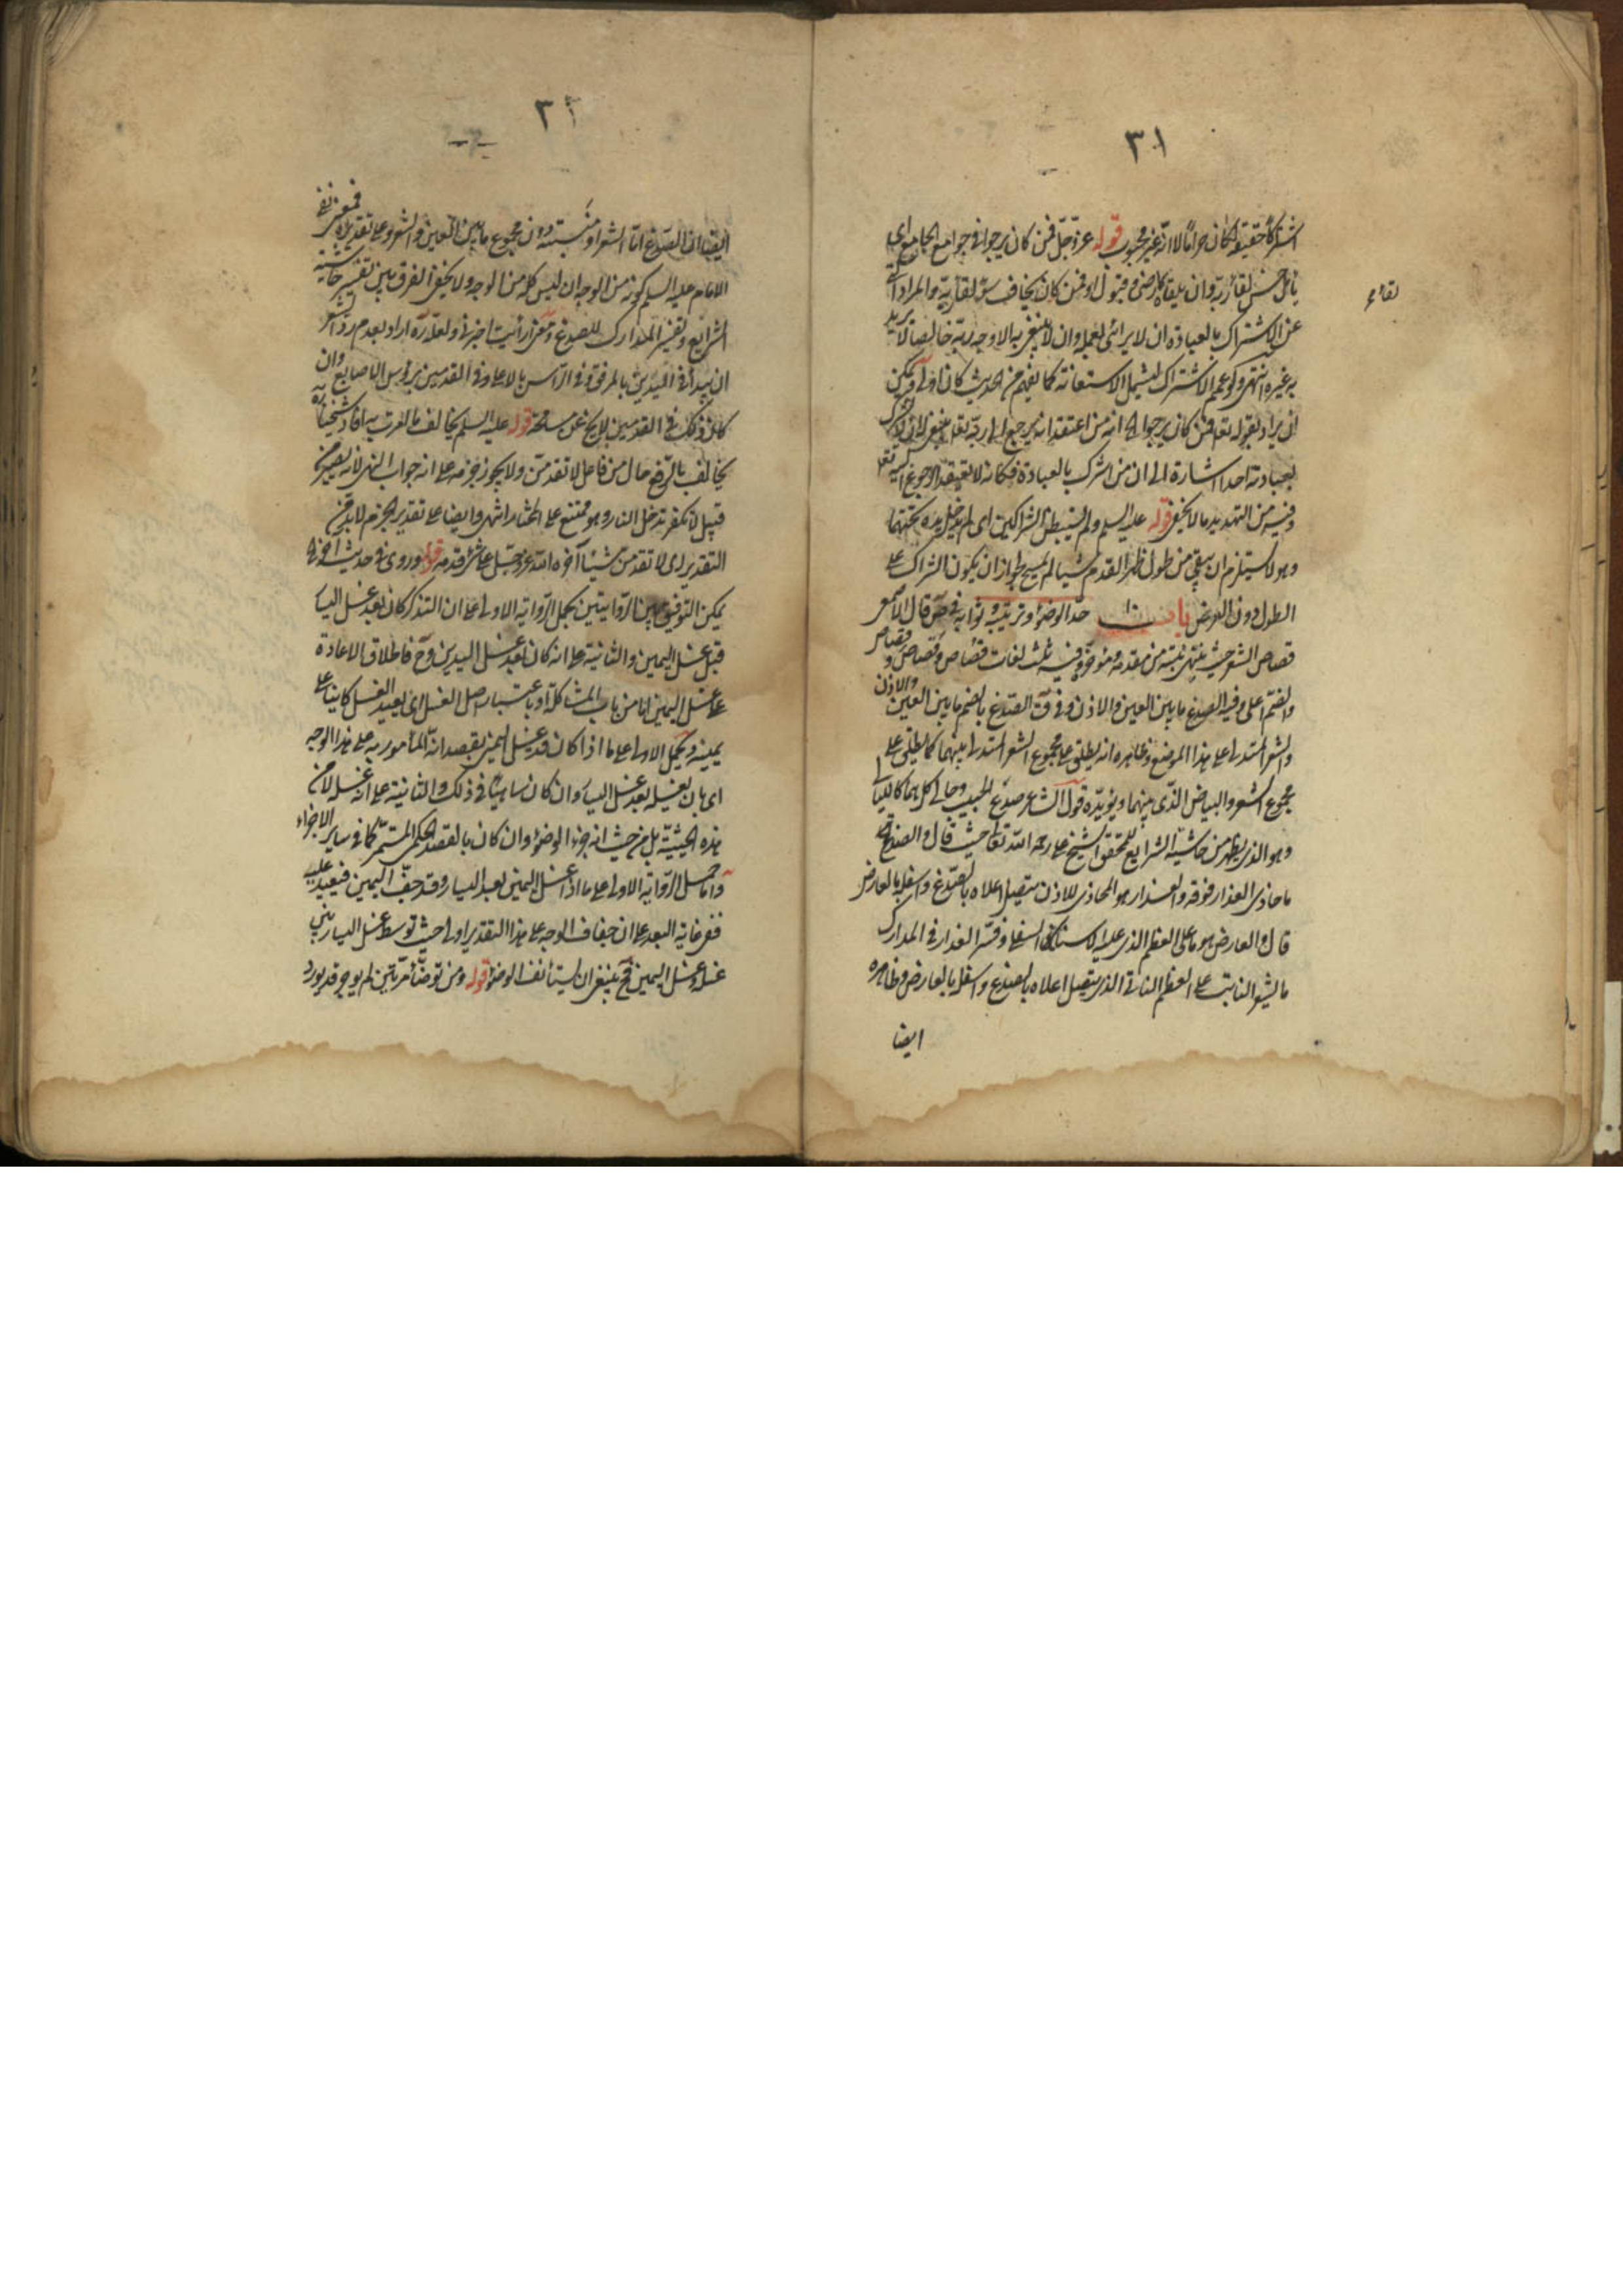 ٣١
اشتراكا حقيقة لكان حراما لا انه غير محبوب قوله عز وجل فمن كان يرجو في جوامع الجامع اي
يأمل حسن لقاء ربه وان يلقاه رضى وقبول او فمن كان يخاف سوء لقاء ربه والمراد
لقاء
عن الاشتراك بالعبادة ان لا يرائى بعمله وان لا يبتغى به الا وجه ربه خالصا لا يريد
به غيره انتهى ولو عمم الاشتراك ليشمل الاستعانة كما يفهم من الحديث كان اولى ويمكن
ان يراد بقوله تعالى فمن كان يرجو انه من اعتقد انه يرجع الى ربه تعالى ينبغى ان لا يشرك
بعبادته احدا اشارة الى ان من اشرك بالعبادة فكانه لا يعتقد الرجوع اليه تعالى
وفيه من التهديد ما لا يخفى قوله عليه السلم ولم يستبطن الشراكين اى لم يدخل يده تحتهما
وهو لا يستلزم ان يبقى من طول ظهر القدم شيئا لم يمسح لجواز ان يكون الشراك على
الطول دون العرض باب حد الوضوء وترتيبه وثوابه في ص قال الاصمعى
قصاص الشعر حيث ينتهى نبته من مقدمه ومؤخره وفيه ثلث لغات قصاص وقصاص وقصاص
والضم اعلى وفيه الصدغ ما بين العين والاذن وفي ق الصدغ بالضم ما بين العين والاذن
والشعر المتدلى على هذا الموضع وظاهره انه يطلق على مجموع الشعر المتدلى بينهما كما يطلق على
مجموع الشعر والبياض الذى بينهما ويؤيده قول الشاعر صدغ الحبيب وحالى كلاهما كالليالى
وهو الذى يظهر من حاشية الشرايع للمحقق الشيخ على رحمه الله تعالى حيث قال والصدغ
ما حاذى العذار فوقه والعذار هو المحاذى للاذن يتصل اعلاه بالصدغ واسفله بالعارض
قال والعارض هو ما على العظم الذى عليه الاسنان السفلى وفسر العذار في المدارك
بالشعر النابت على العظم الناتى الذى يتصل اعلاه بالصدغ واسفله بالعارض وظاهره
ايضا
٣٢
ايضا ان الصدغ اما الشعر او منبته دون مجموع ما بين العين والشعر وعلى تقديره فمعنى نفى
الامام عليه السلم كونه من الوجه ان ليس كله من الوجه ولا يخفى الفرق بين تفسير حاشية
الشرايع وتفسير المدارك للصدغ ومعنى ارأيت اخبرنى ولعل زرارة اراد بعدم رد الشعر
ان يبدأ في اليدين بالمرفق وفي الرأس بالاعلى وفي القدمين برؤس الاصابع وان
كان ذلك في القدمين لا يخ عن مسامحة قوله عليه السلم يخالف ما امرت به افاد شيخنا
يخالف بالرفع حال من فاعل لا تقدمن ولا يجوز جزمه على انه جواب النهى لانه يصير من
قبيل لا تكفر تدخل النار وهو ممتنع على المختار اشهر وايضا على تقدير الجزم لا بد من
التقدير اى لا تقدمن شيئا آخره الله عز وجل على شىء قدمه قوله وروى في حديث آخر
يمكن التوفيق بين الروايتين بحمل الرواية الاولى على ان التذكر كان بعد غسل اليسار
قبل غسل اليمين والثانية على انه كان بعد غسل اليدين وح فاطلاق الاعادة
على غسل اليمين اما من باب المشاكلة او باعتبار اصل الغسل اى يعيد الغسل كاينا على
يمينه ويحمل الاولى على ما اذا كان قد غسل اليمين بقصد انه المأمور به على هذا الوجه
اى بان يغسله بعد غسل اليسار وان كان ناسيا في ذلك والثانية على انه غسله لا من
هذه الحيثية بل من حيث انه جزء الوضوء وان كان بالقصد الحكمى المستمر كما في ساير الاجزاء
واما حمل الرواية الاولى على ما اذا غسل اليمين بعد اليسار وقد جف اليمين فيعيد عليه
ففى غاية البعد على ان جفاف الوجه على هذا التقدير اولى حيث توسط غسل اليسار بين
غسله وغسل اليمين فح ينبغى ان يستأنف الوضوء قوله ومن توضأ مرتين لم يوجر قد يورد